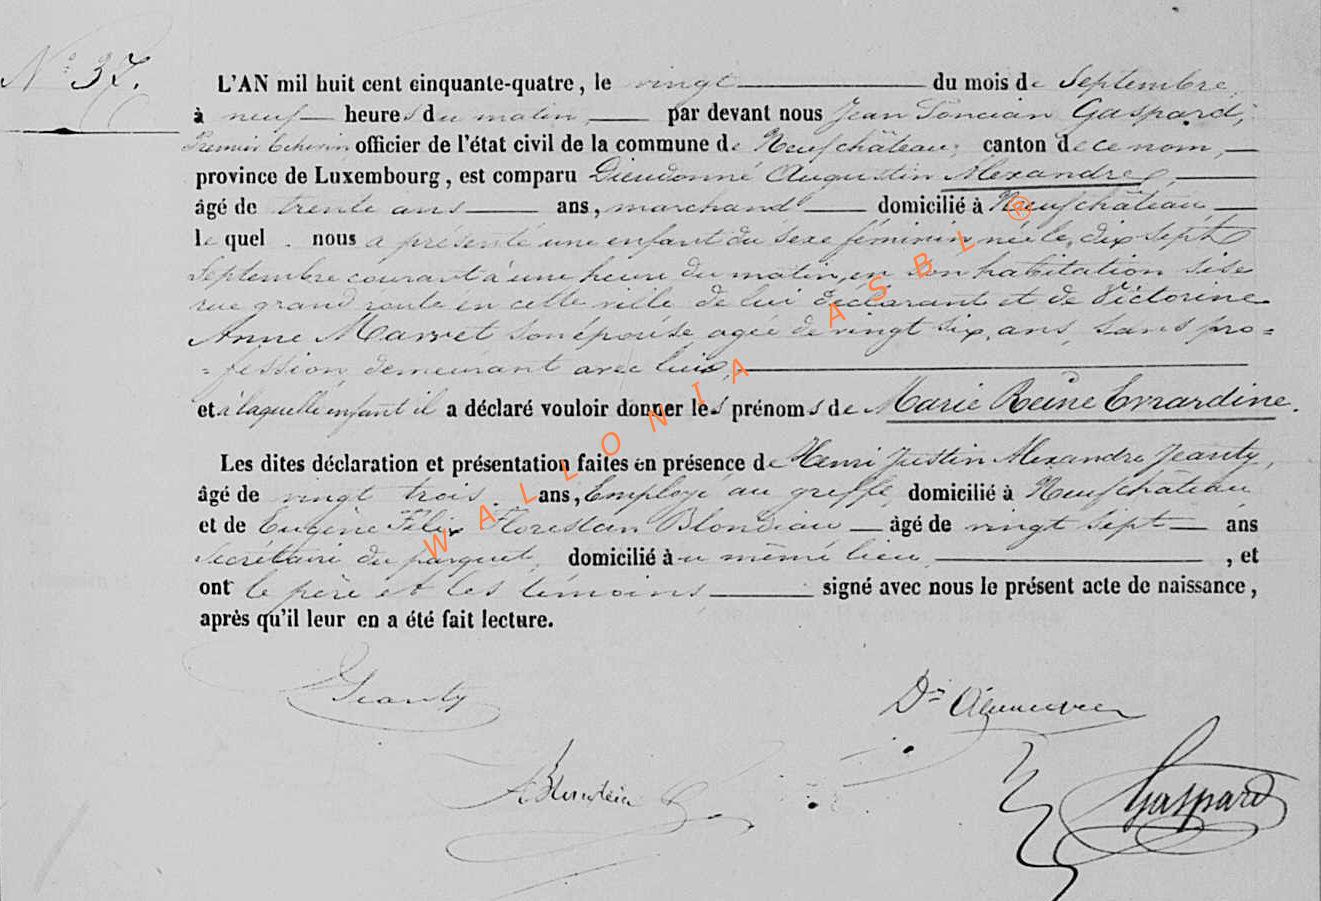 N° 37.
L'AN mil huit cent cinquante-quatre, le vingt du mois de Septembre,
à neuf heures du matin, par devant nous Jean Poncian Gaspard,
Premier Echevin, officier de l'état civil de la commune de Neufchâteau, canton de ce nom,
province de Luxembourg, est comparu Dieudonné Augustin Alexandre,
âgé de trente ans ans, marchand domicilié à Neufchâteau,
lequel nous a présenté une enfant du sexe féminin née le dix sept
Septembre courant à une heure du matin, en son habitation sise
rue grand route en cette ville de lui déclarant et de Victorine
Anne son épouse agée de vingt six ans, sans pro=
=fession demeurant avec lui,
et à laquelle enfant il a déclaré vouloir donner les prénoms de Marie Reine Evrardine.
Les dites déclaration et présentation faites en présence de Henri Justin Alexandre Jeanty,
âgé de vingt trois ans, Employé au greffe domicilié à Neufchâteau
et de Eugène Félix Florestan Blondiau âgé de vingt sept ans
Secrétaire du parquet, domicilié au même lieu, , et
ont le père et les témoins signé avec nous le présent acte de naissance,
après qu'il leur en a été fait lecture.
Jeanty
Gaspard
WALLONIA ASBL ®